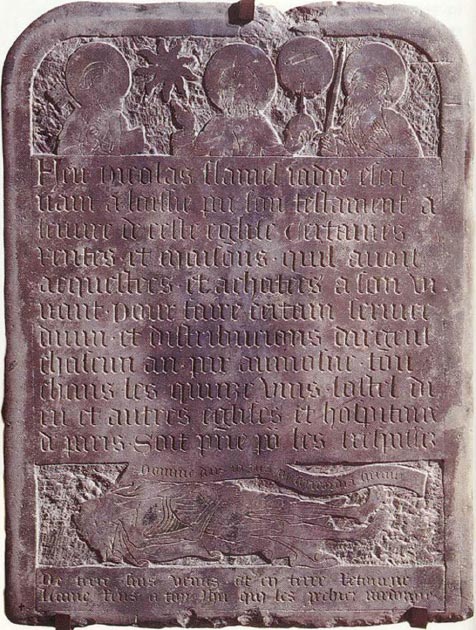 Feu nicolas flamel iadis escri
uain a laissie par son testament a
leuure de ceste eglise certaines
rentes et maisons quil auoit
acquestees et achatees a son vi
uant pour faire certain seruice
diuin et distribucions dargent
chascun an par aumosne tou
chans les quinze vins lostel di
eu et autres eglises et hospitaux
de paris Soit prie po les trespasses
Domine deus in tua misericordia speraui
De terre suis venus et en terre retorne
lame rens a toy Jhu qui les pechiez pardone